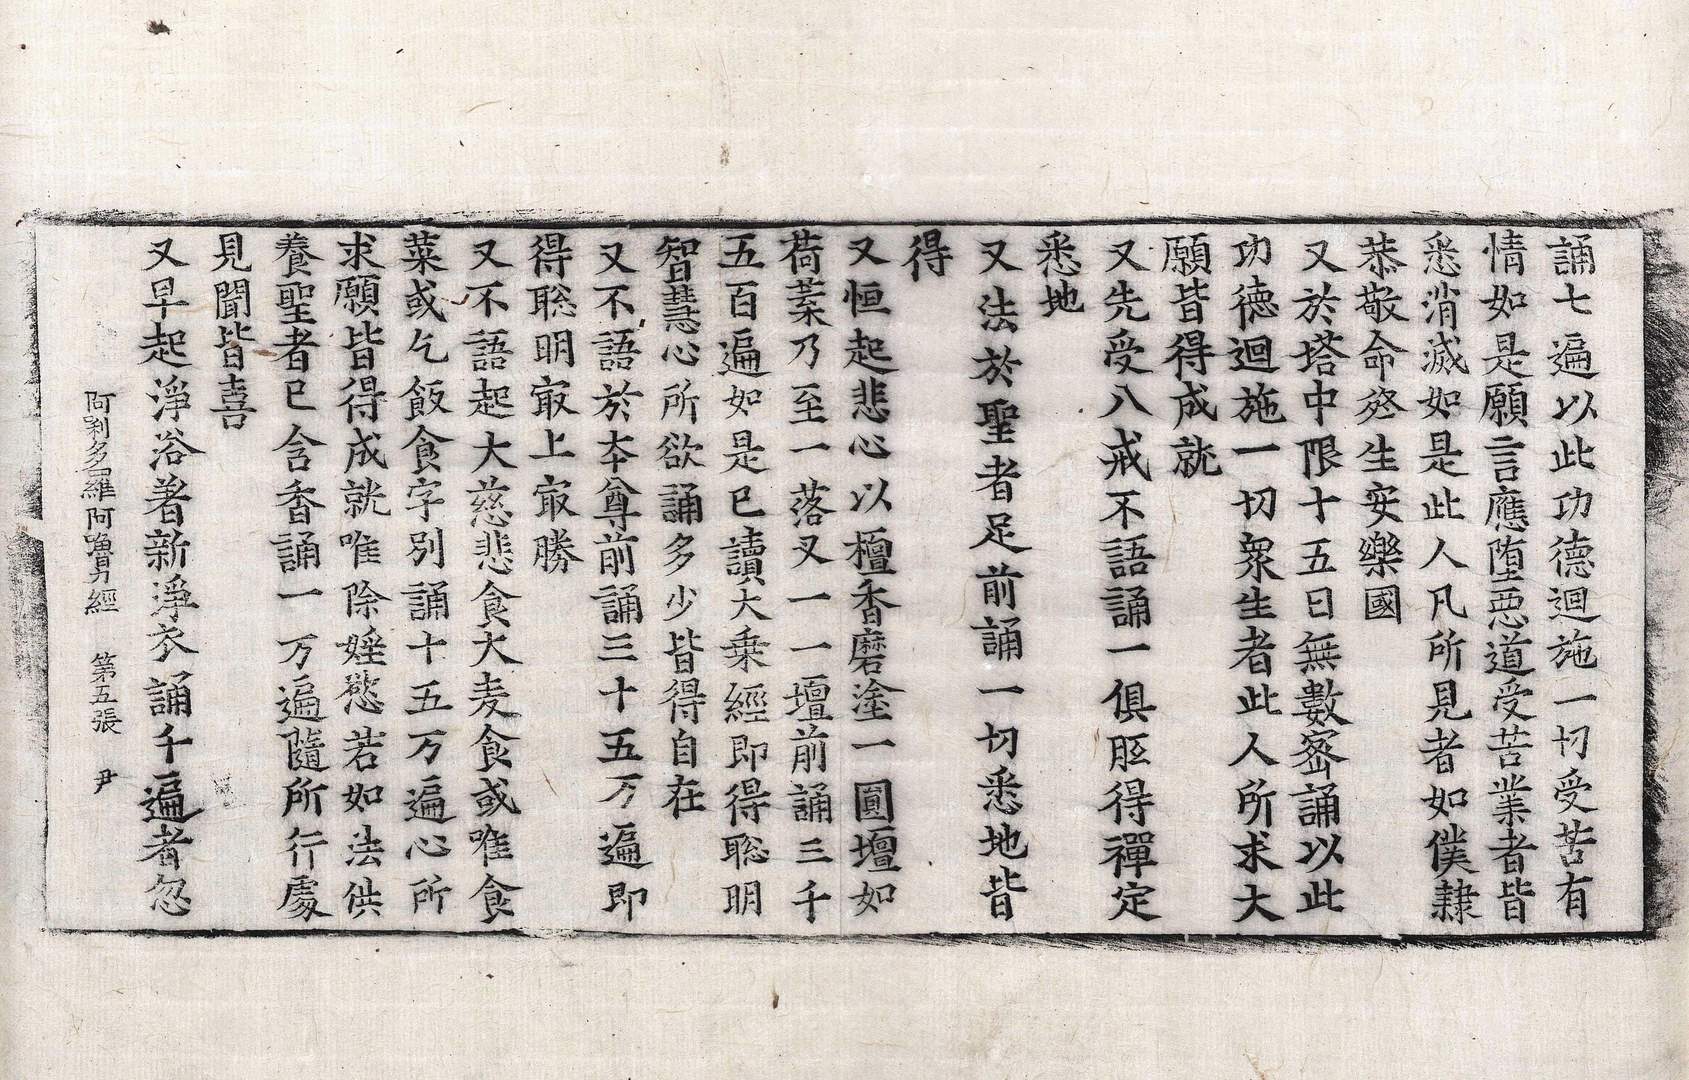 誦七遍以此功德迴施一切受苦有
情如是願言應墮惡道受苦業者皆
悉消滅如是此人凡所見者如僕隷
恭敬命終生安樂國
又於塔中限十五日無數密誦以此
功德迴施一切衆生者此人所求大
願皆得成就
又先受八戒不語誦一俱胝得禪定
悉地
又法於聖者足前誦一切悉地皆
得
又恒起悲心以檀香磨塗一圓壇如
荷葉乃至一落叉一一壇前誦三千
五百遍如是已讀大乗經即得聡明
智慧心所欲誦多少皆得自在
又不語於本尊前誦三十五万遍即
得聡明㝡上㝡勝
又不語起大慈悲食大麦食或唯食
菜或乞飯食字別誦十五万遍心所
求願皆得成就唯除婬慾若如法供
養聖者已含香誦一万遍隨所行處
見聞皆喜
又早起淨浴著新淨衣誦千遍者忽
阿唎多羅阿嚕力經 第五張 尹